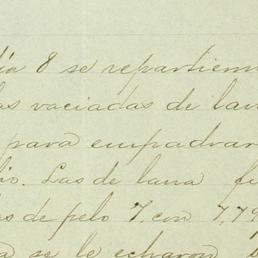 día 8 se repartieron
las vaciadas de lana
para empadrar
io. Las de lana fu
as de pelo 7, con 7,79
a se le echaron